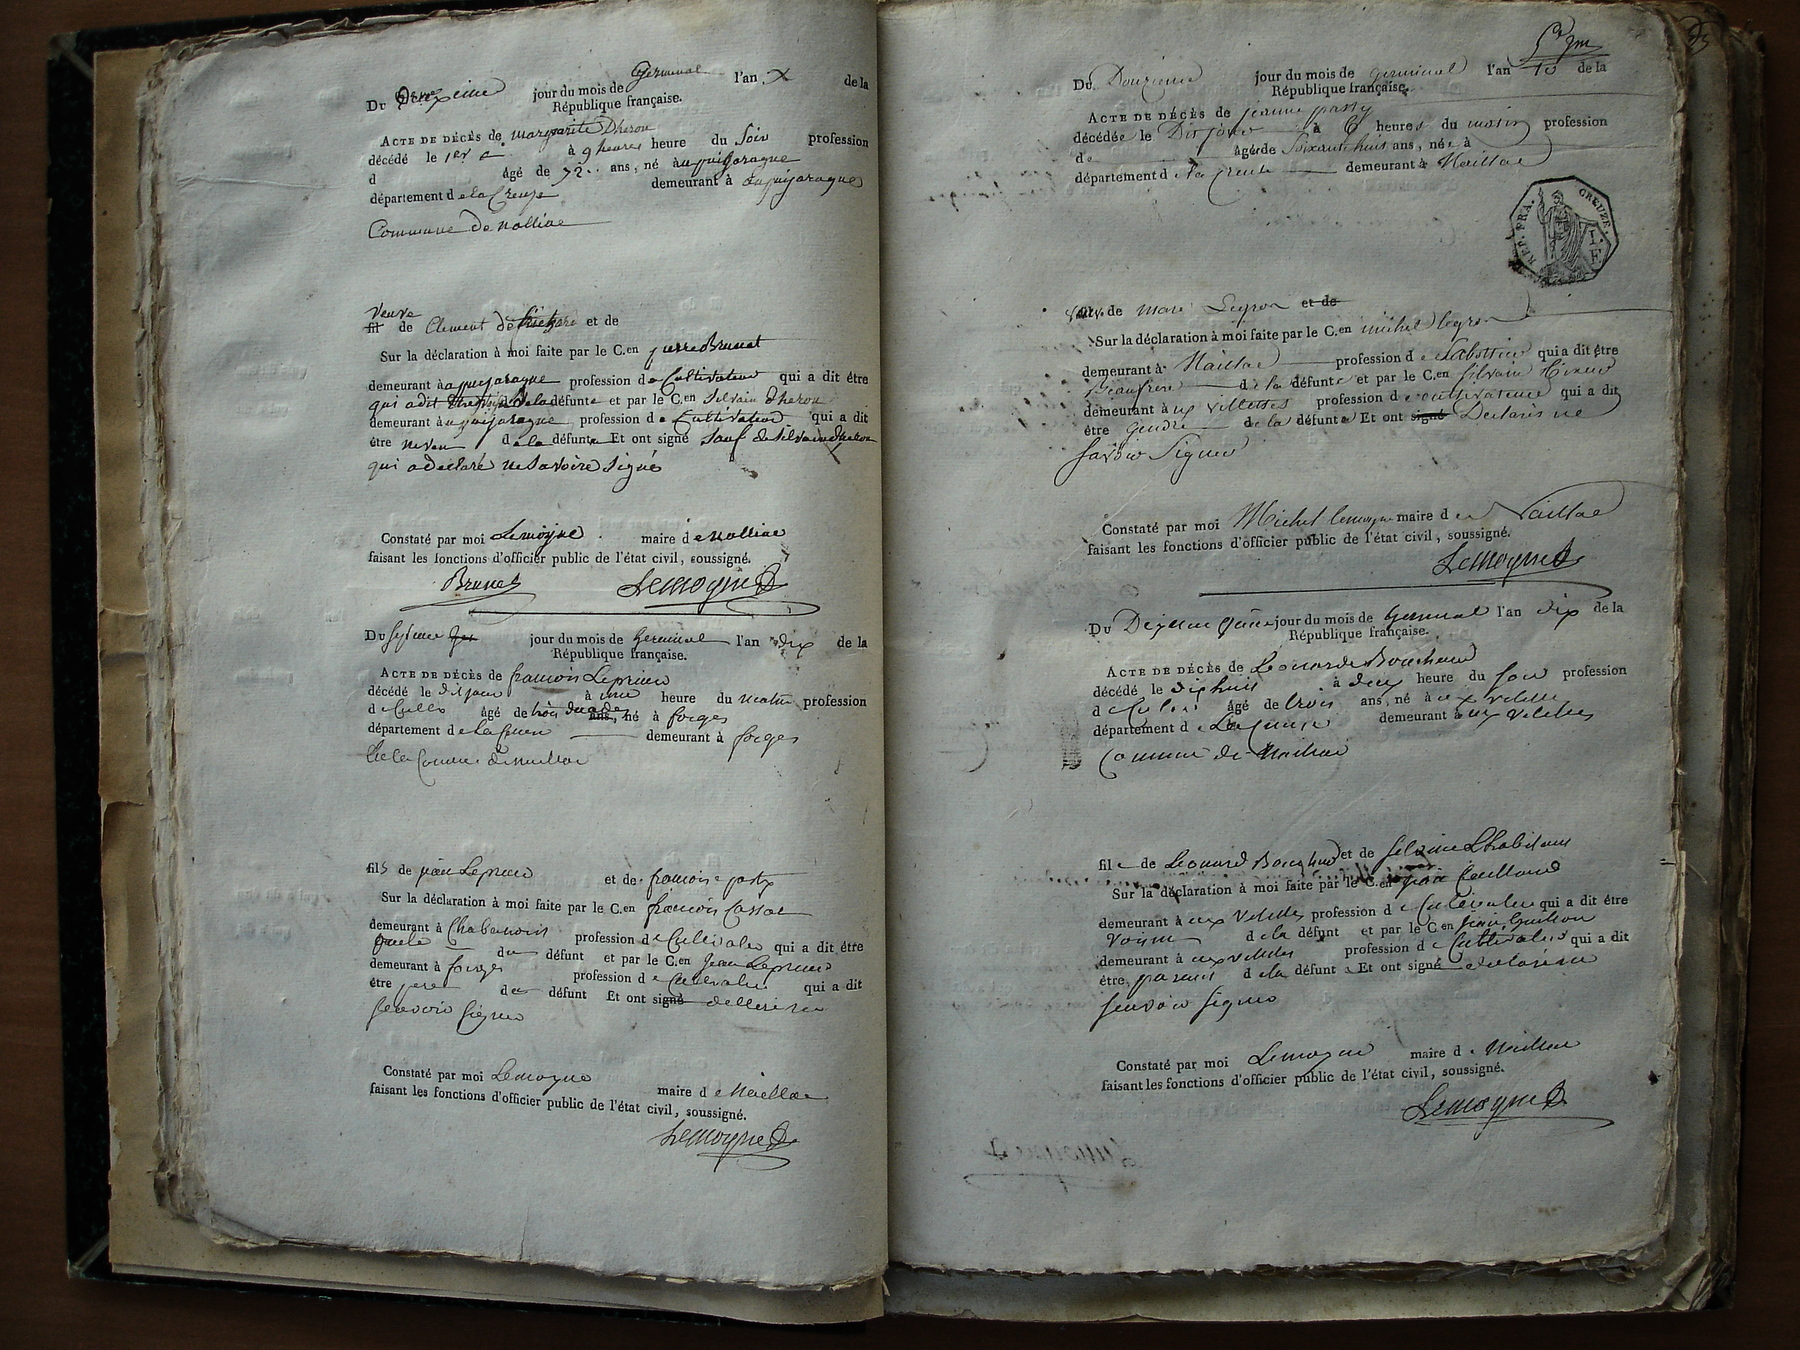 Du Deuxeime jour du mois de Germinal l'an X de la
République française.
ACTE DE DÉCÈS de margarite Dheron
décédé le 1er à 9 heures heure du Soir profession
d âgé de 72 ans, né au puijaragne
département de la Creuse demeurant à aupuijaragne
Commune de nalliac
Veuve
fil de Clement de et de
Sur la déclaration à moi faite par le C.en pierre Brunet
demeurant à apuijaragne profession de Cultivateur qui a dit être
qui a dit de la défunte et par le C.en Silvain dheron
demeurant aupuijaragne profession de Cultivateur qui a dit
être neveu de la défunte Et ont signé Sauf de Silvain dheron
qui a declaré ne Savoire Signé
Constaté par moi Lemoyne maire de nalliac
faisant les fonctions d'officier public de l'état civil, soussigné.
Brunet Lemoyne
Du jour du mois de Germinal l'an dix de la
République française.
ACTE DE DÉCÈS de francois Leprieur
décédé le dit jour à une heure du matin profession
d âgé de trois decades ans, né à forges
département de la Creuse demeurant à forges
de la Commune de naillac
fils de jean Leprieur et de francoise
Sur la déclaration à moi faite par le C.en francois
demeurant à Chabannois profession de Cultivateur qui a dit être
du défunt et par le C.en Jean Leprieur
demeurant à forges profession de Cultivateur qui a dit
être pere du défunt Et ont signé
scavoir Signer
Constaté par moi Lemoyne maire de Naillac
faisant les fonctions d'officier public de l'état civil, soussigné.
Lemoyne
Du Douzieme jour du mois de germinal l'an 10 de la
République française.
ACTE DE DÉCÈS de jeanne
décédée le Dit jour à 6 heures du matin profession
de âgée de Soixante huit ans, née à
département de la Creuse demeurant à Naillac
REP. FRA. CREUZE.
de marc Legros et de
Sur la déclaration à moi faite par le C.en michel legros
demeurant à Naillac profession de Sabottier qui a dit être
Beaufrere de la défunte et par le C.en Silvain
demeurant à ux villettes profession de cultivateur qui a dit
être Gendre de la défunte Et ont signé Declaré ne
Savoir Signer
Constaté par moi Michel lemoyne maire de Naillac
faisant les fonctions d'officier public de l'état civil, soussigné.
Lemoyne
Du jour du mois de Germinal l'an dix de la
République française.
ACTE DE DÉCÈS de Leonarde Bouchaud
décédé le dix huit à deux heure du soir profession
d âgé de trois ans, né à ux villettes
département de La Creuse demeurant à ux villettes
Commune de Naillac
file de Leonard Bouchaud et de silvaine
Sur la déclaration à moi faite par le C.en
demeurant à ux villettes profession de Cultivateur qui a dit être
voisin de la défunt et par le C.en jean
demeurant à ux villettes profession de Cultivateur qui a dit
être parent de la défunt Et ont signé
scavoir signer
Constaté par moi Lemoyne maire de Naillac
faisant les fonctions d'officier public de l'état civil, soussigné.
Lemoyne